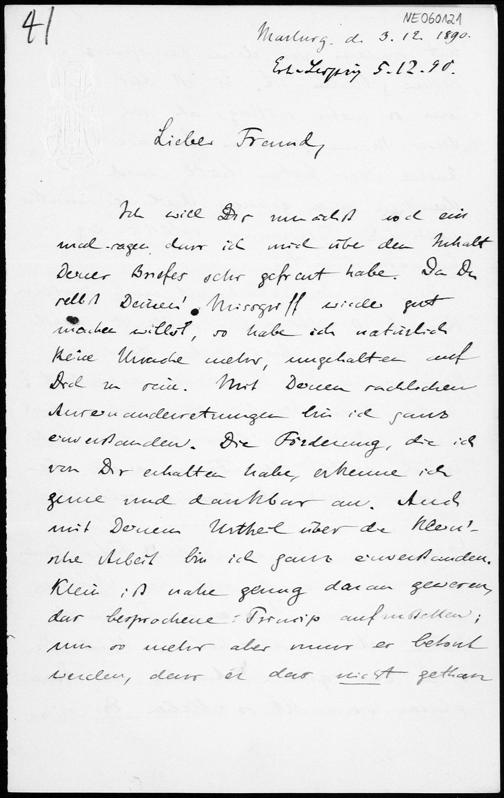 41
NE060121
Marburg. d. 3. 12. 1890.
Erh. Leipzig 5.12.90.
Lieber Freund,
Ich will Dir zunächst noch ein
mal sagen, dass ich mich über den Inhalt
Deines Briefes sehr gefreut habe. Da Du
selbst Deinen Missgriff wieder gut
machen willst, so habe ich natürlich
keine Ursache mehr, ungehalten auf
Dich zu sein. Mit Deinen sachlichen
Auseinandersetzungen bin ich ganz
einverstanden. Die Förderung, die ich
von Dir erhalten habe, erkenne ich
gerne und dankbar an. Auch
mit Deinem Urtheil über die Klein'-
sche Arbeit bin ich ganz einverstanden.
Klein ist nahe genug daran gewesen,
das besprochene Prinzip aufzustellen;
um so mehr aber muss er betont
werden, dass er das nicht gethan